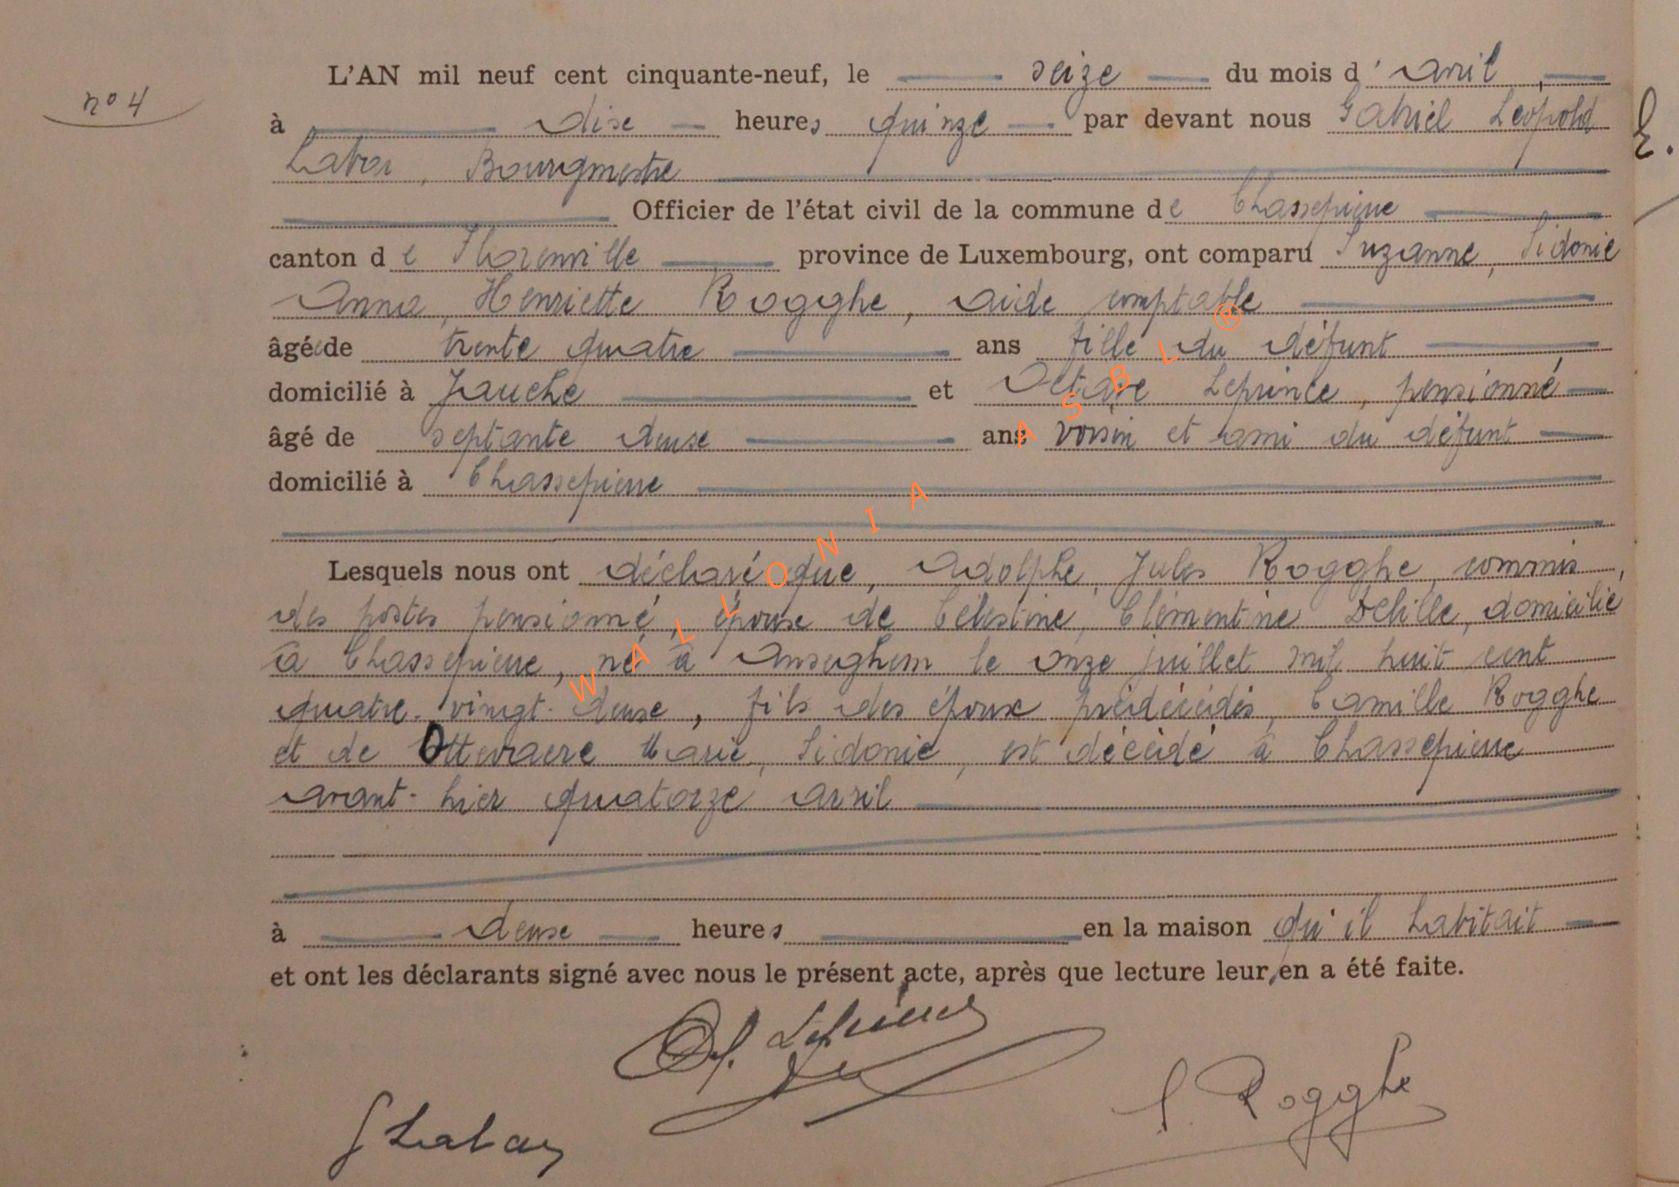 n° 4
L'AN mil neuf cent cinquante-neuf, le seize du mois d'avril,
à dixe heures quinze par devant nous Gabriel Léopold
Bourgmestre
Officier de l'état civil de la commune de Chassepierre
canton de Florenville province de Luxembourg, ont comparu Suzanne, Sidonie
Anna, Henriette Rogghe, aide comptable
âgée de trente quatre ans fille du défunt
domicilié à Jauche et Octave Leprince, pensionné
âgé de septante deuxe ans voisin et ami du défunt
domicilié à Chassepierre
Lesquels nous ont déclaré que, Adolphe, Jules Rogghe, commis,
des postes pensionné, époux de Célestine, Clémentine Delille, domicilié
à Chassepierre, né à Anseghem le onze juillet mil huit cent
quatre-vingt-deuxe, fils des époux prédécédés, Camille Rogghe
et de Ottevaere Marie, Sidonie, est décédé à Chassepierre
avant-hier quatorze avril
à deuxe heures en la maison qu'il habitait
et ont les déclarants signé avec nous le présent acte, après que lecture leur en a été faite.
S. Rogghe
WALLONIA ASBL ®